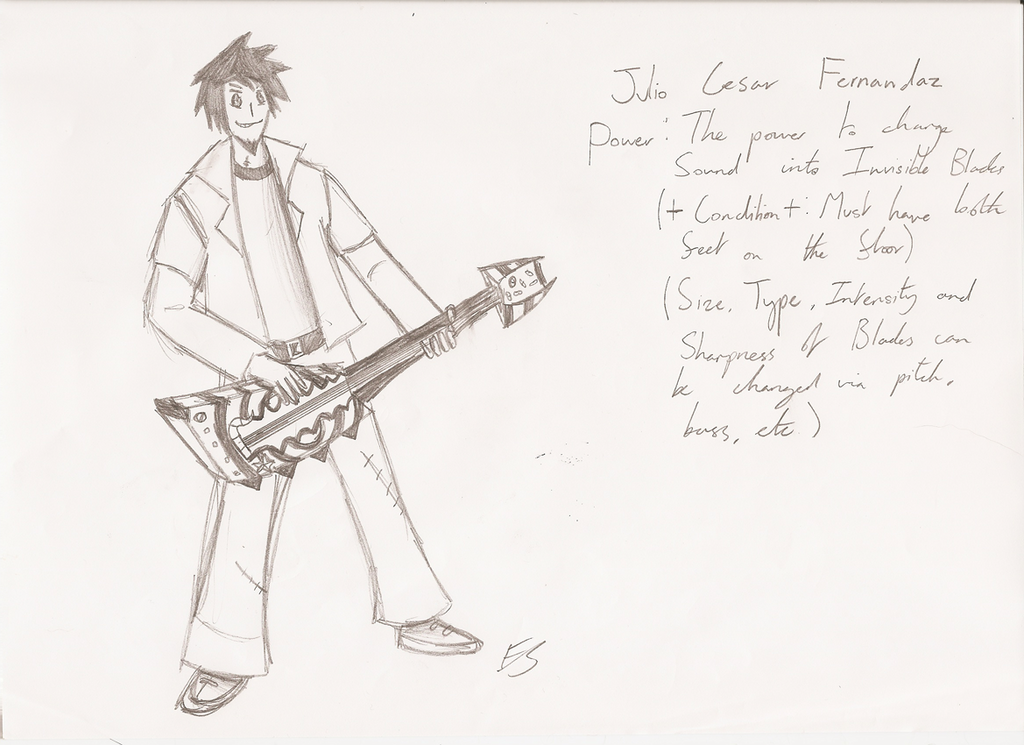 Julio Cesar Fernandaz
Power: The power to change
Sound into Invisible Blades
(+ Condition +: Must have both
feet on the floor)
(Size, Type, Intensity and
Sharpness of Blades can
be changed via pitch,
bass, etc.)
ES